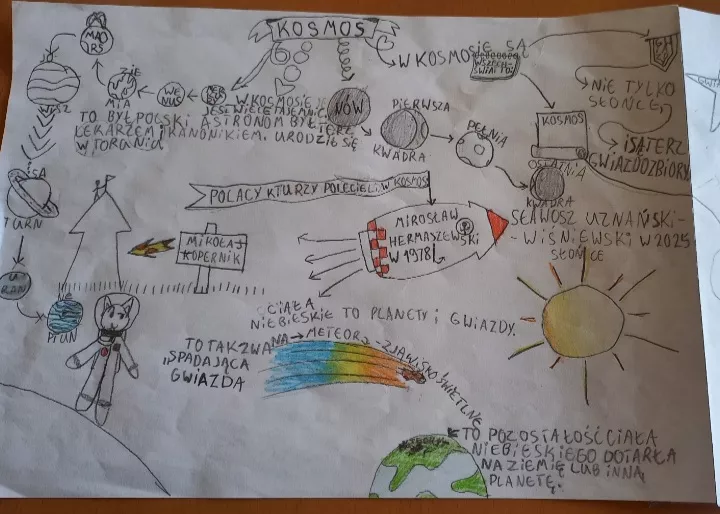 KOSMOS
W KOSMOSIE SĄ
WSZECH-
ŚWIATY
NIE TYLKO
SŁOŃCE,
I SĄ TERZ
GWIAZDOZBIORY
KOSMOS
MARS
ZIE
MIA
WENUS
W KOSMOSIE
JEST WIELE TAJEMNIC
TO BYŁ POLSKI ASTRONOM BYŁ TERZ
LEKARZEM I KANONIKIEM. URODZIŁ SIĘ
W TORONIU
NÓW
PIERWSZA
KWADRA
PEŁNIA
OSTATNIA
KWADRA
SA
TURN
U
RAN
POLACY KTURZY POLECIELI W KOSMOS
MIROSŁAW
HERMASZEWSKI
W 1978
SŁAWOSZ UZNAŃSKI-
-WIŚNIEWSKI W 2025
SŁOŃCE
MIKOŁAJ
KOPERNIK
CIAŁA
NIEBIESKIE TO PLANETY I GWIAZDY.
TO TAK ZWANA → METEORY - ZJAWISKO ŚWIETLNE
SPADAJĄCA
GWIAZDA
TO POZOSTAŁOŚĆ CIAŁA
NIEBIESKIEGO DOTARŁA
NA ZIEMIĘ LUB INNĄ
PLANETĘ.